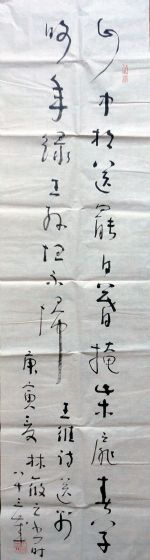 山中相送罷日暮掩柴扉春草
明年綠王孫歸不歸
王維詩送別
庚寅夏林筱之書時
八十三